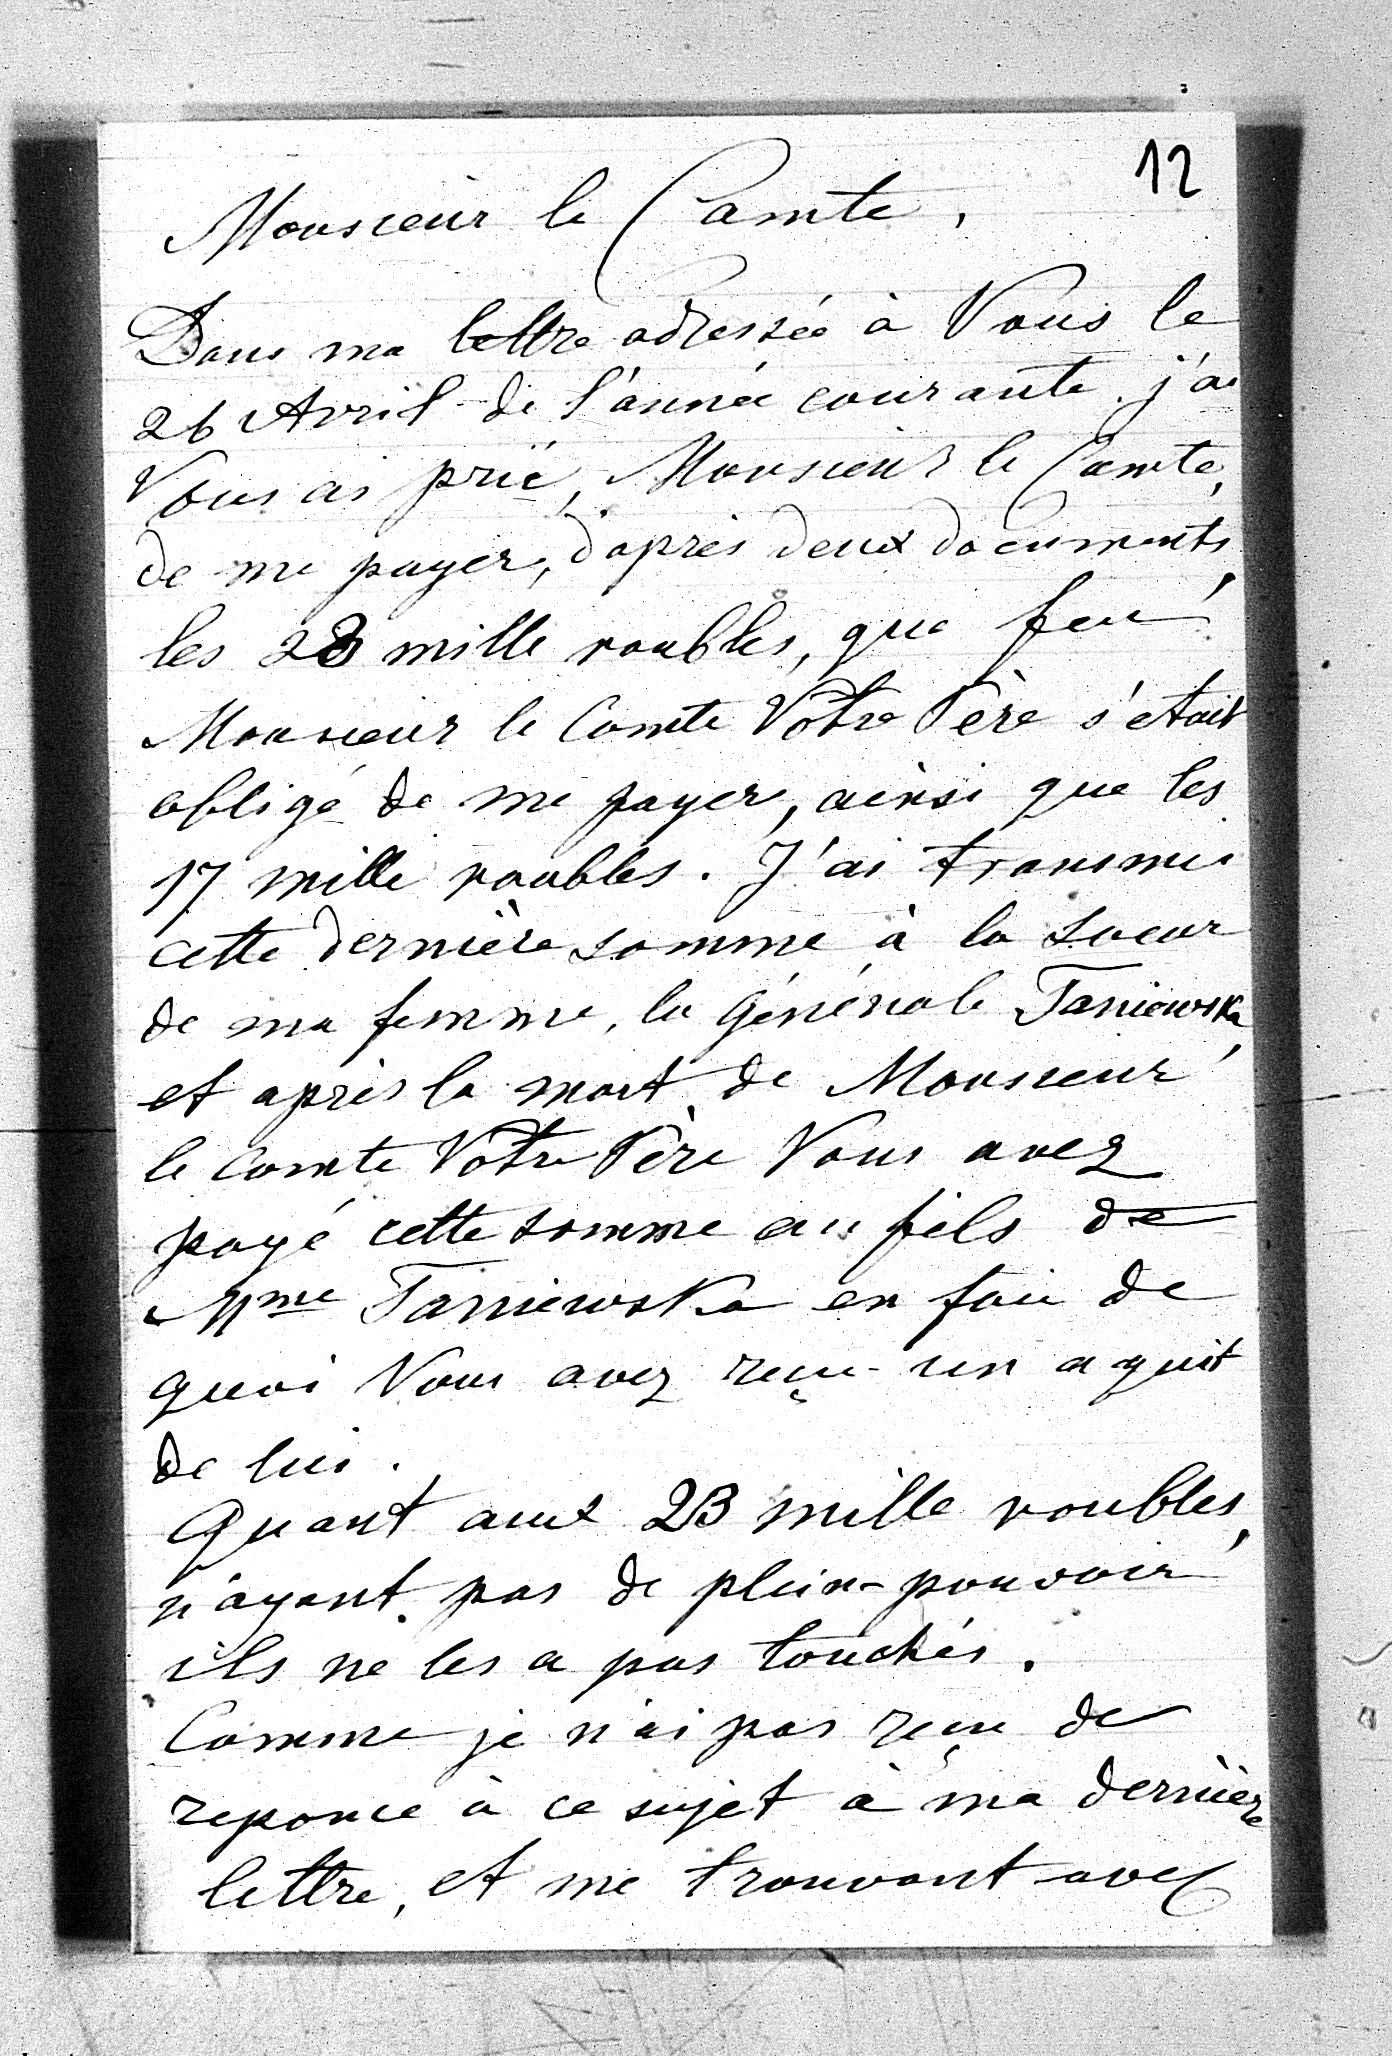 12
Monsieur le Comte,
Dans ma lettre adressée à Vous le
26 Avril de l'année courante j'ai
Vous ai prié, Monsieur le Comte,
de me payer, d'après deux documents
les 23 mille roubles, que feu
Monsieur le Comte Votre Père s'etait
obligé de me payer, ainsi que les
17 mille roubles. J'ai transmis
cette dernière somme à la soeur
de ma femme, la Générale Taniewska,
et après la mort de Monsieur
le Comte Votre Père Vous avez
payé cette somme au fils de
Mme Taniewska en foi de
quoi Vous avez reçu un aquit
de lui.
Quant aux 23 mille roubles,
n'ayant pas de plein-pouvoir
ils ne les a pas touchés.
Comme je n'ai pas reçu de
reponce à ce sujet à ma dernière
lettre, et me trouvant avec